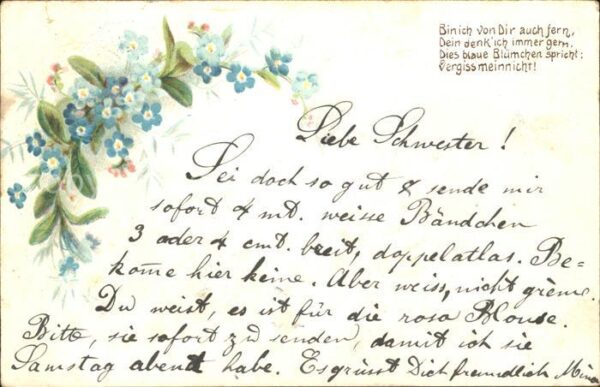 Bin ich von Dir auch fern,
Dein denk' ich immer gern.
Dies blaue Blümchen spricht:
Vergissmeinnicht!
Liebe Schwester!
Sei doch so gut & sende mir
sofort 4 mt. weisse Bändchen
3 oder 4 cmt. breit, doppelatlas. Be-
kome hier keine. Aber weiss, nicht grème.
Du weist, es ist für die rosa Blouse.
Bitte, sie sofort zu senden, damit ich sie
Samstag abend habe. Es grüsst Dich freundlich Mina